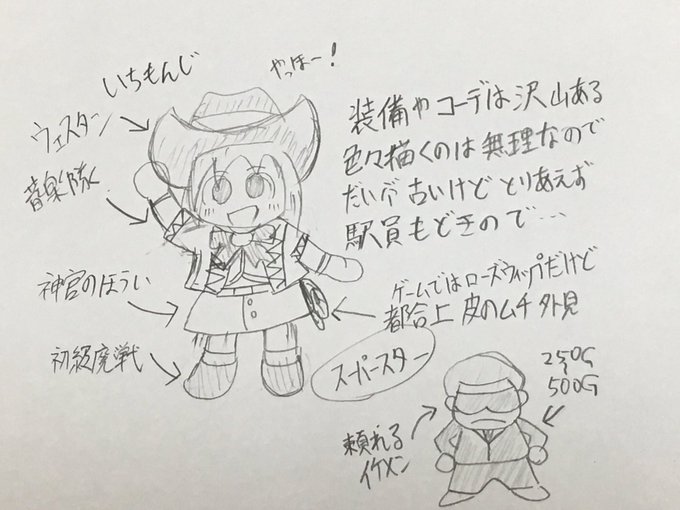 いちもんじ
やっほー!
ウェスタン
音楽隊
神宮のほうい
初級廃戦
装備やコーデは沢山ある
色々描くのは無理なので
だいぶ古いけどとりあえず
駅員もどきので…
ゲームではローズウィップだけど
都合上皮のムチ外見
スーパースター
250G
〜
500G
頼れる
イケメン